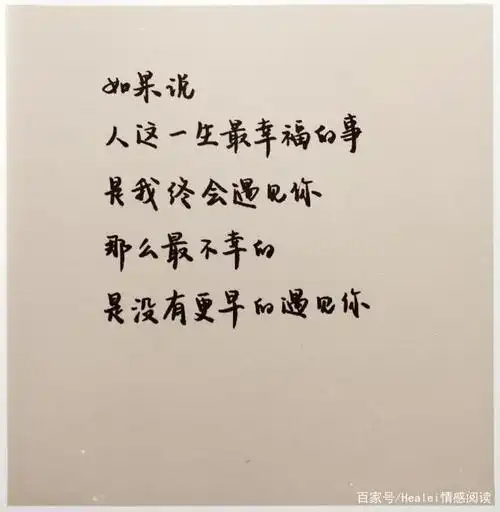 如果说
人这一生最幸福的事
是我终会遇见你
那么最不幸的
是没有更早的遇见你
百家号/Healei情感阅读